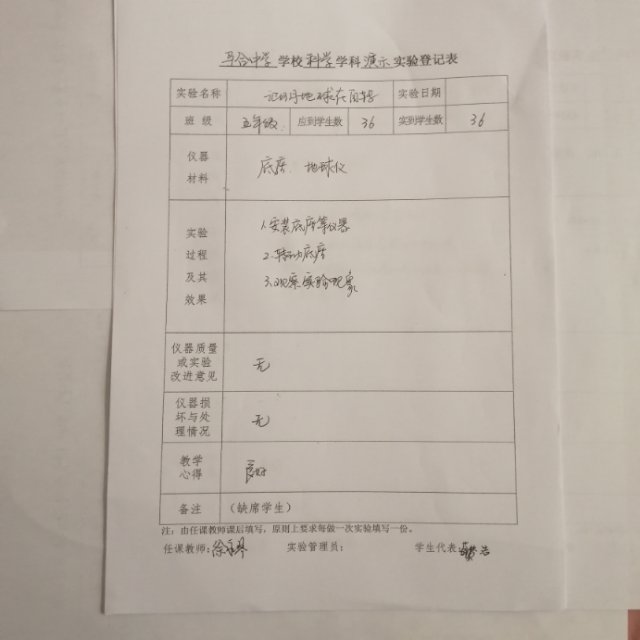 合中学 学校 科学 学科 演示 实验登记表
实验名称 地球在自转 实验日期
班 级 五年级 应到学生数 36 实到学生数 36
仪器
材料
底座 地球仪
实验
过程
及其
效果
1.安装底座等仪器
2.转动底座
3.观察实验现象
仪器质量
或实验
改进意见
无
仪器损
坏与处
理情况
无
教学
心得
良好
备注 （缺席学生）
注：由任课教师课后填写，原则上要求每做一次实验填写一份。
任课教师： 实验管理员： 学生代表：